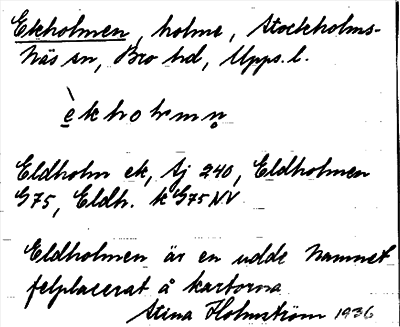 Ekholmen, holme, Stockholms-
Näs sn, Bro hd, Upps. l.
èkholmn̥
Eldholm ek, Aj 240, Eldholmen
G75, Eldh. k G75 NV
Eldholmen är en udde Namnet
felplacerat å kartorna
Stina Holmström 1936